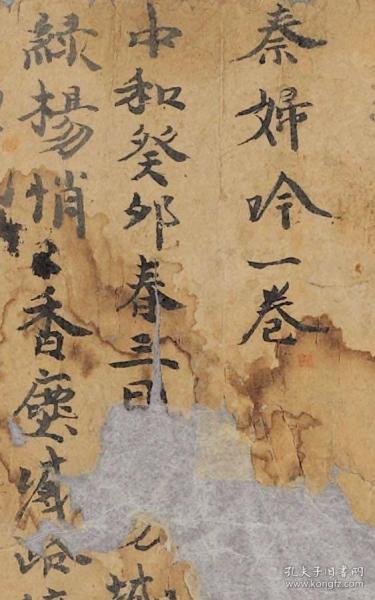 秦婦吟一卷
中和癸卯春三月
綠楊悄〻香塵滅路
孔夫子旧书网
www.kongfz.com